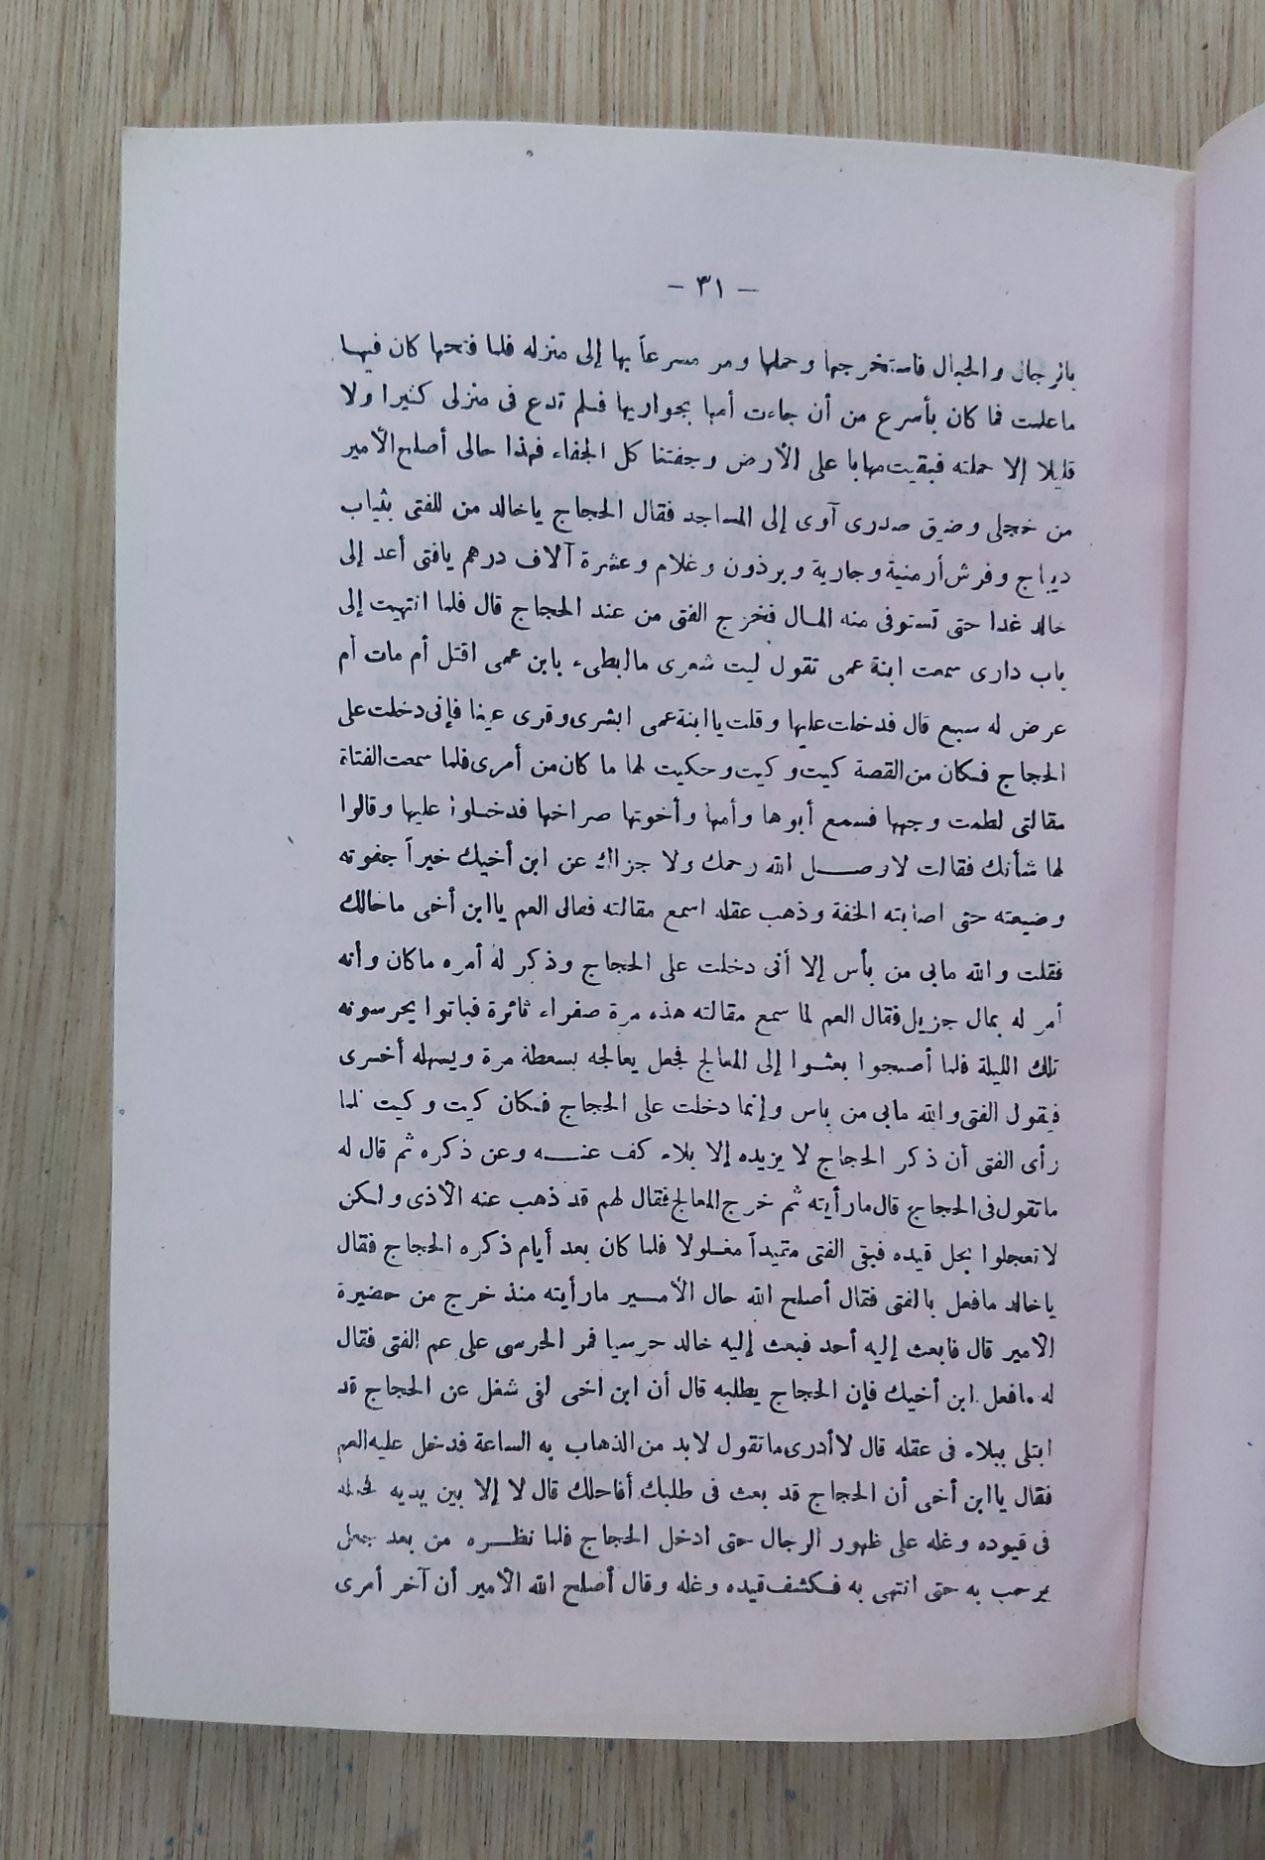 — ٣١ —
بالرجال والحبال فاستخرجها وحملها ومر مسرعاً بها إلى منزله فلما فتحها كان فيها
ما علمت فما كان بأسرع من أن جاءت أمها بجواريها فلم تدع فى منزلى كثيرا ولا
قليلا إلا حملته فبقيت مهابا على الأرض وجفتنا كل الجفاء فهذا حالى أصلح الأمير
من خجلى وضيق صدرى آوى إلى المساجد فقال الحجاج ياخالد من للفتى بثياب
ديباج وفرش أرمنية وجارية وبرذون وغلام وعشرة آلاف درهم يافتى أعد إلى
خالد غدا حتى تستوفى منه المال فخرج الفتى من عند الحجاج قال فلما انتهيت إلى
باب دارى سمعت ابنة عمى تقول ليت شعرى ما ابطىء بابن عمى اقتل أم مات أم
عرض له سبع قال فدخلت عليها وقلت يا ابنة عمى ابشرى وقرى عينا فإنى دخلت على
الحجاج فكان من القصة كيت وكيت وحكيت لها ما كان من أمرى فلما سمعت الفتاة
مقالتى لطمت وجهها فسمع أبوها وأمها وأخوتها صراخها فدخلوا عليها وقالوا
لها شأنك فقالت لا وصل الله رحمك ولا جزاك عن ابن أخيك خيراً جفوته
وضيعته حتى اصابته الخفة وذهب عقله اسمع مقالته فقال العم يا ابن أخى ما حالك
فقلت والله مابى من بأس إلا أنى دخلت على الحجاج وذكر له أمره ماكان وأنه
أمر له بمال جزيل فقال العم لما سمع مقالته هذه مرة صفراء ثائرة فباتوا يحرسونه
تلك الليلة فلما أصبحوا بعثوا إلى المعالج فجعل يعالجه بسعطة مرة ويسهله أخرى
فيقول الفتى والله مابى من باس وإنما دخلت على الحجاج فكان كيت وكيت فلما
رأى الفتى أن ذكر الحجاج لا يزيده إلا بلاء كف عنه وعن ذكره ثم قال له
ماتقول فى الحجاج قال مارأيته ثم خرج المعالج فقال لهم قد ذهب عنه الأذى ولكن
لا تعجلوا بحل قيده فبقى الفتى مقيداً مغلولا فلما كان بعد أيام ذكره الحجاج فقال
ياخالد مافعل بالفتى فقال أصلح الله حال الأمير مارأيته منذ خرج من حضيرة
الأمير قال فابعث إليه أحد فبعث إليه خالد حرسيا فمر الحرسى على عم الفتى فقال
له مافعل ابن أخيك فإن الحجاج يطلبه قال أن ابن اخى لفى شغل عن الحجاج قد
ابتلى ببلاء فى عقله قال لا أدرى ماتقول لابد من الذهاب به الساعة فدخل عليه العم
فقال يا ابن أخى أن الحجاج قد بعث فى طلبك أفاحلك قال لا إلا بين يديه فحمله
فى قيوده وغله على ظهور الرجال حتى ادخل الحجاج فلما نظره من بعد جعل
يرحب به حتى انتهى به فكشف قيده وغله وقال أصلح الله الأمير أن آخر أمرى